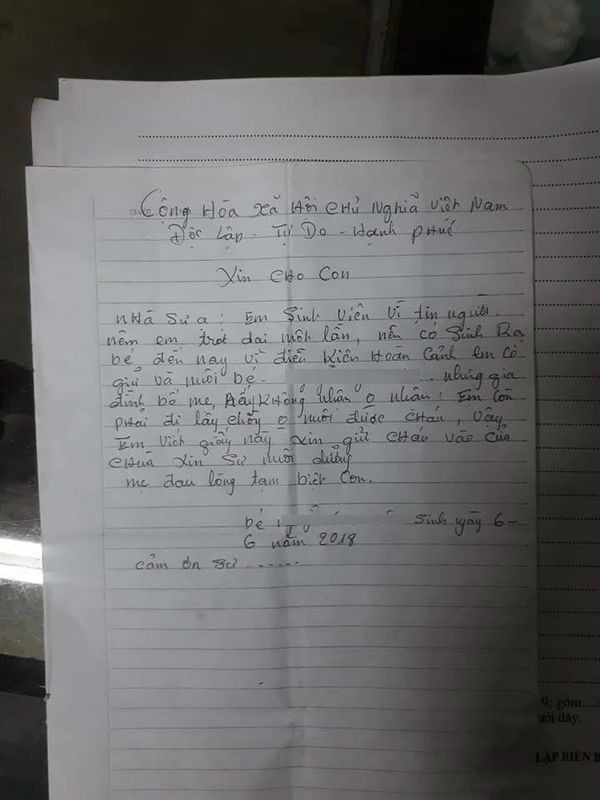 Cộng Hòa Xã Hội Chủ Nghĩa Việt Nam
Độc Lập - Tự Do - Hạnh Phúc
Xin CHO Con
NHÀ Sư ạ: Em Sinh Viên Vì tin người.
nêm em trót dại một lần, nên có Sinh Ra
bé đến nay vì điều Kiện Hoàn Cảnh em cố
giữ và nuôi bé. ... nhưng gia
đình bố mẹ, ấy KHông nhân o nhân: Em Còn
PHải đi lấy chồng o nuôi được CHáu, Vậy
Em Viết giấy này Xin gửi CHáu vào Của
CHùa Xin Sư nuôi dưỡng
mẹ đau lòng tạm biệt Con.
bé Sinh ngày 6-
6 năm 2018
cảm ơn sư ......
9; gồm.....
ưới đây,
LẬP BIÊN B